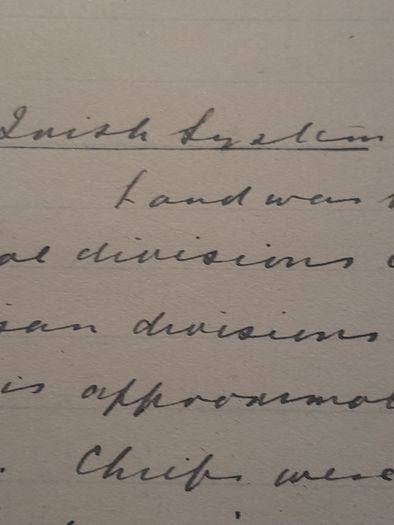 Irish System
Land was
divisions
divisions
is approximat
Chiefs were